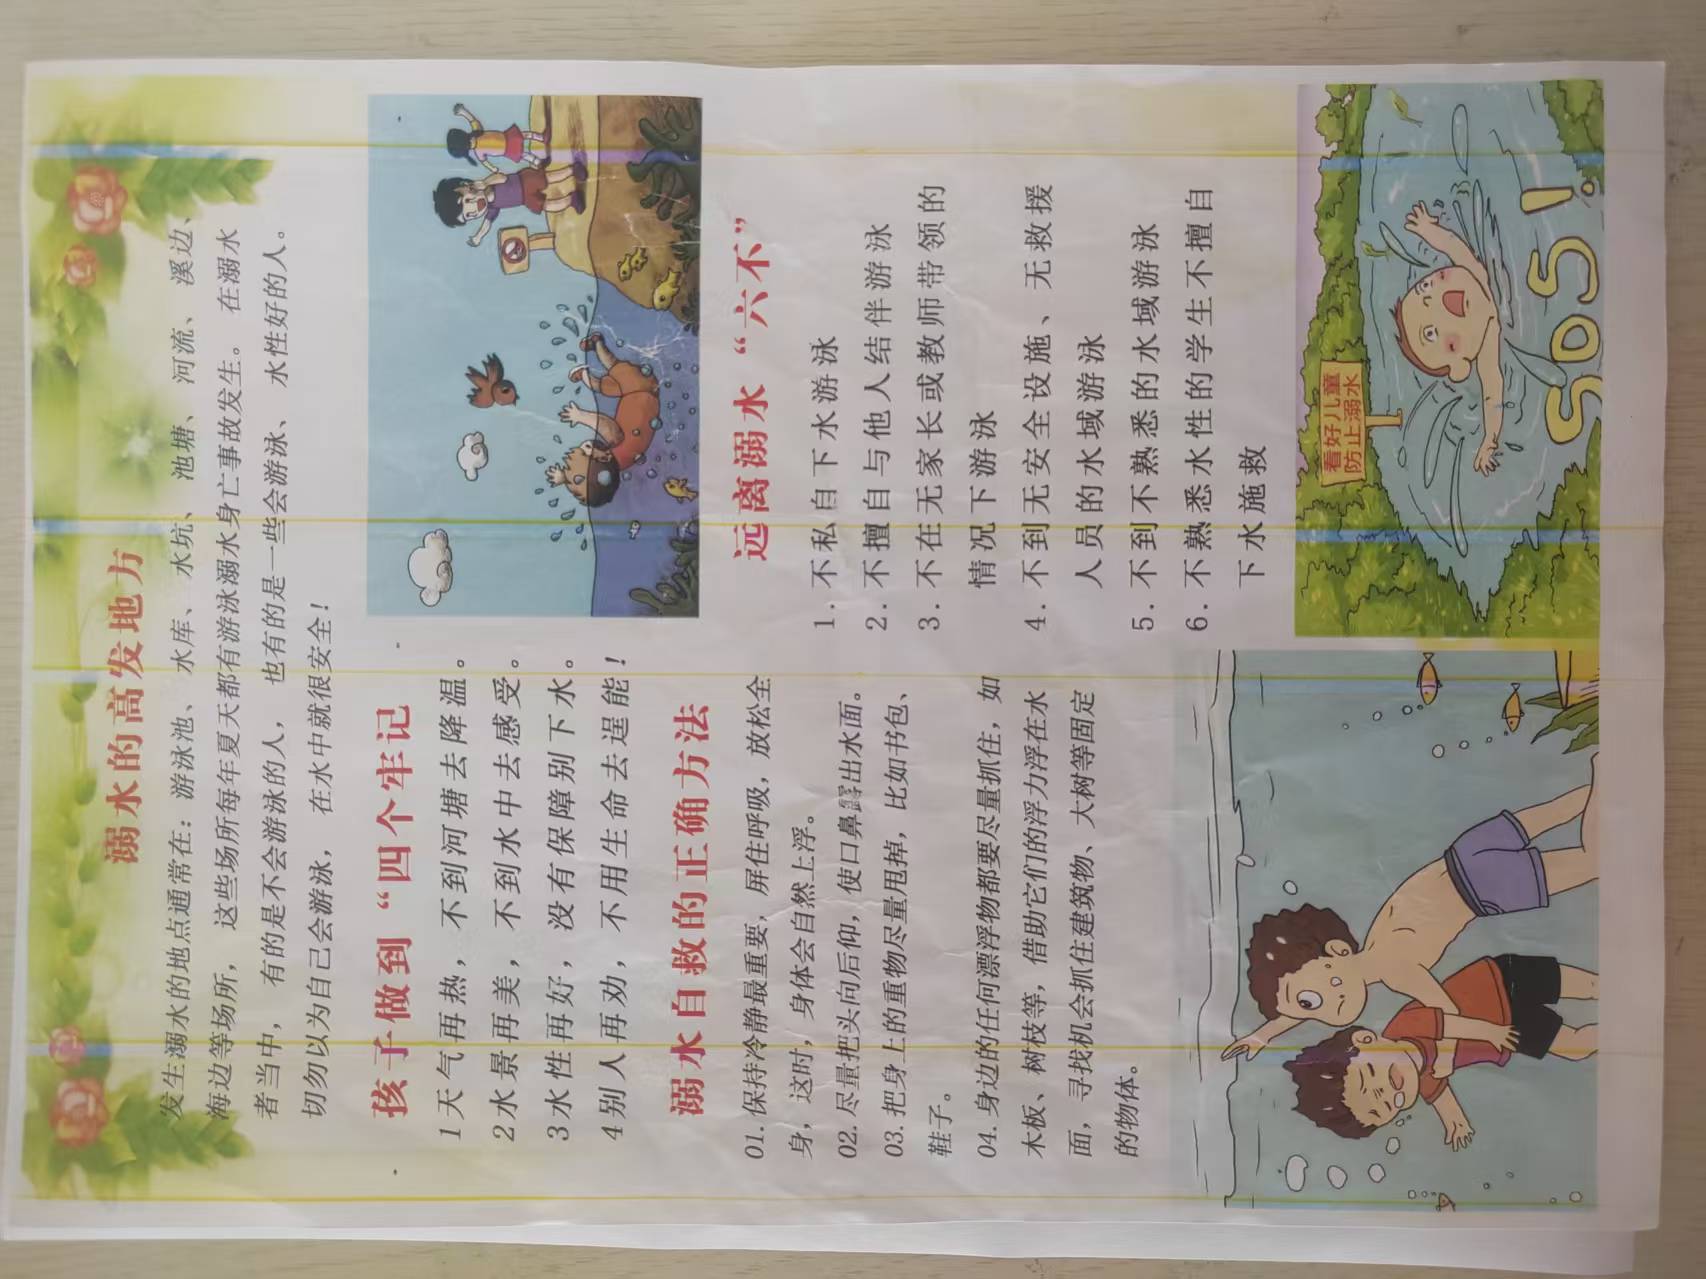 溺水的高发地方
发生溺水的地点通常在：游泳池、水库、水坑、池塘、河流、溪边、
海边等场所，这些场所每年夏天都有游泳溺水身亡事故发生。在溺水
者当中，有的是不会游泳的人，也有的是一些会游泳、水性好的人。
切勿以为自己会游泳，在水中就很安全！
孩子做到“四个牢记
1天气再热，不到河塘去降温。
2水景再美，不到水中去感受。
3水性再好，没有保障别下水。
4别人再劝，不用生命去逞能！
溺水自救的正确方法
01.保持冷静最重要，屏住呼吸，放松全
身，这时，身体会自然上浮。
02.尽量把头向后仰，使口鼻露出水面。
03.把身上的重物尽量甩掉，比如书包、
鞋子。
04.身边的任何漂浮物都要尽量抓住，如
木板、树枝等，借助它们的浮力浮在水
面，寻找机会抓住建筑物、大树等固定
的物体。
远离溺水“六不”
1.不私自下水游泳
2.不擅自与他人结伴游泳
3.不在无家长或教师带领的
情况下游泳
4.不到无安全设施、无救援
人员的水域游泳
5.不到不熟悉的水域游泳
6.不熟悉水性的学生不擅自
下水施救
看好儿童
防止溺水
SOS！